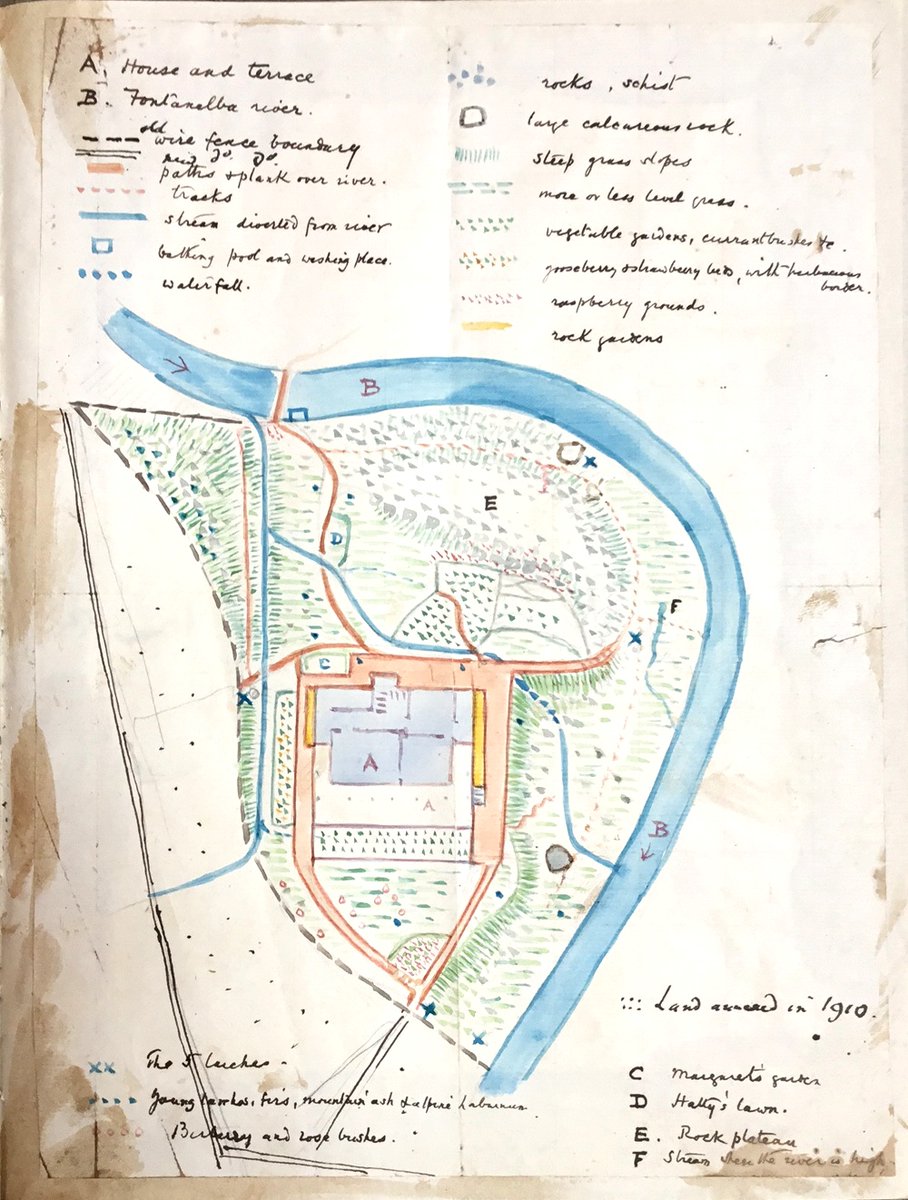 A. House and terrace
B. Fontanelba river.
old wire fence boundary
new do. do.
paths & plank over river.
tracks
stream diverted from river
bathing pool and washing place.
waterfall.
rocks, schist
large calcareous rock.
steep grass slopes
more or less level grass.
vegetable gardens, currantbushes &c.
gooseberry & strawberry beds, with herbaceous
border.
raspberry grounds.
rock gardens
B
E
D
F
C
A
A
B
Land annexed in 1910.
The 5 larches
Young larches, firs, mountain ash & alpine laburnum
Berberry and rose bushes.
C Margaret's garden
D Hatty's lawn.
E. Rock plateau
F Stream when the river is high